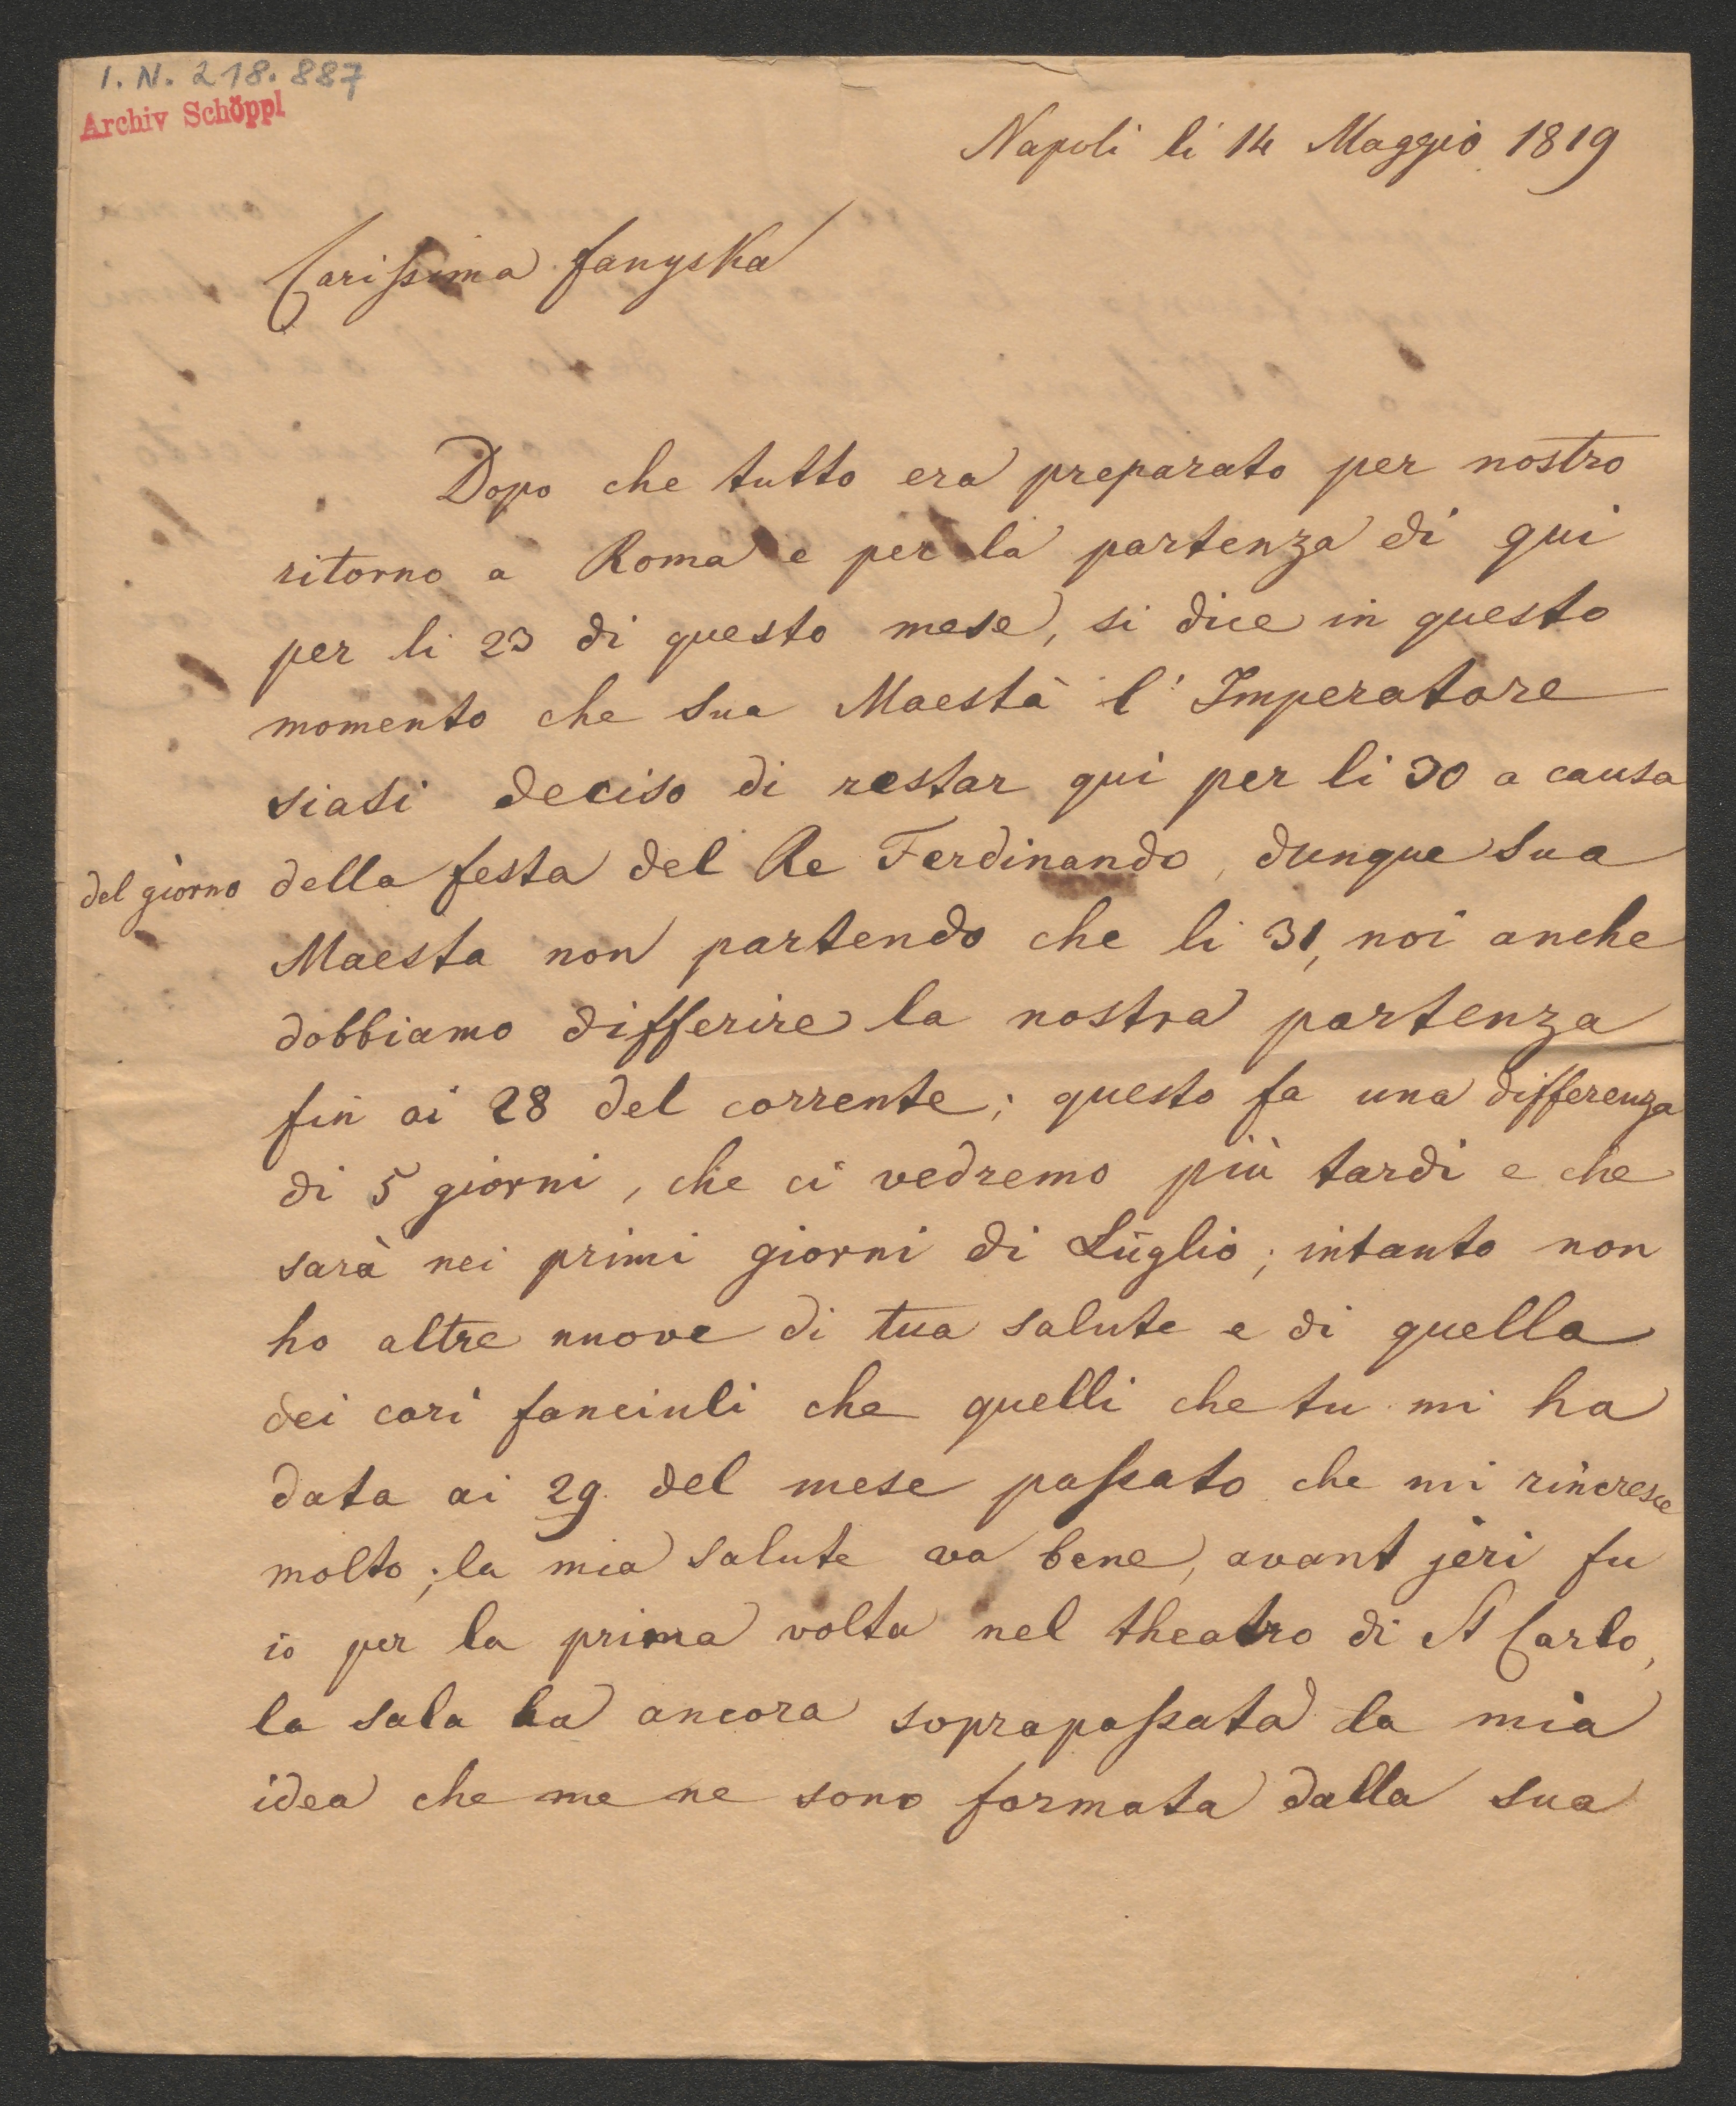 I. N. 218.887
Archiv Schöppl
Napoli li 14 Maggio 1819
Carissima fanyska
Dopo che tutto era preparato per nostro
ritorno a Roma e per la partenza di qui
per li 23 di questo mese, si dice in questo
momento che Sua Maestà l'Imperatore
siasi deciso di restar qui per li 30 a causa
del giorno della festa del Re Ferdinando, dunque Sua
Maesta non partendo che li 31, noi anche
dobbiamo differire la nostra partenza
fin ai 28 del corrente; questo fa una differenza
di 5 giorni, che ci vedremo più tardi e che
sarà nei primi giorni di Luglio; intanto non
ho altre nuove di tua salute e di quella
dei cari fanciuli che quelli che tu mi ha
data ai 29 del mese passato che mi rincresce
molto; la mia salute va bene, avant jeri fu
io per la prima volta nel theatro di St Carlo,
la sala ha ancora soprapassata la mia
idea che me ne sono formata dalla sua